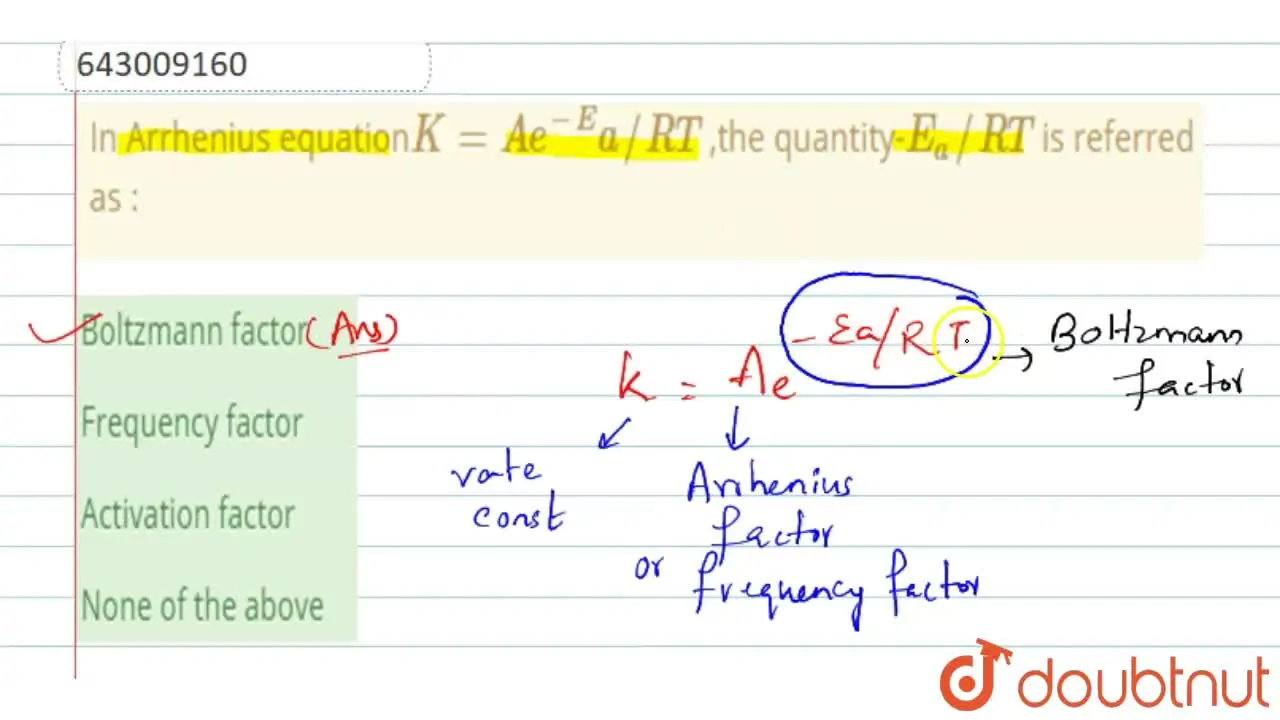 643009160
In Arrhenius equation K = Ae^{-E}a/RT ,the quantity-E_a/RT is referred
as :
Boltzmann factor (Ans)
Frequency factor
Activation factor
None of the above
k = Ae^{-Ea/RT} → Boltzmann
factor
rate
const
Arrhenius
factor
or frequency factor
doubtnut